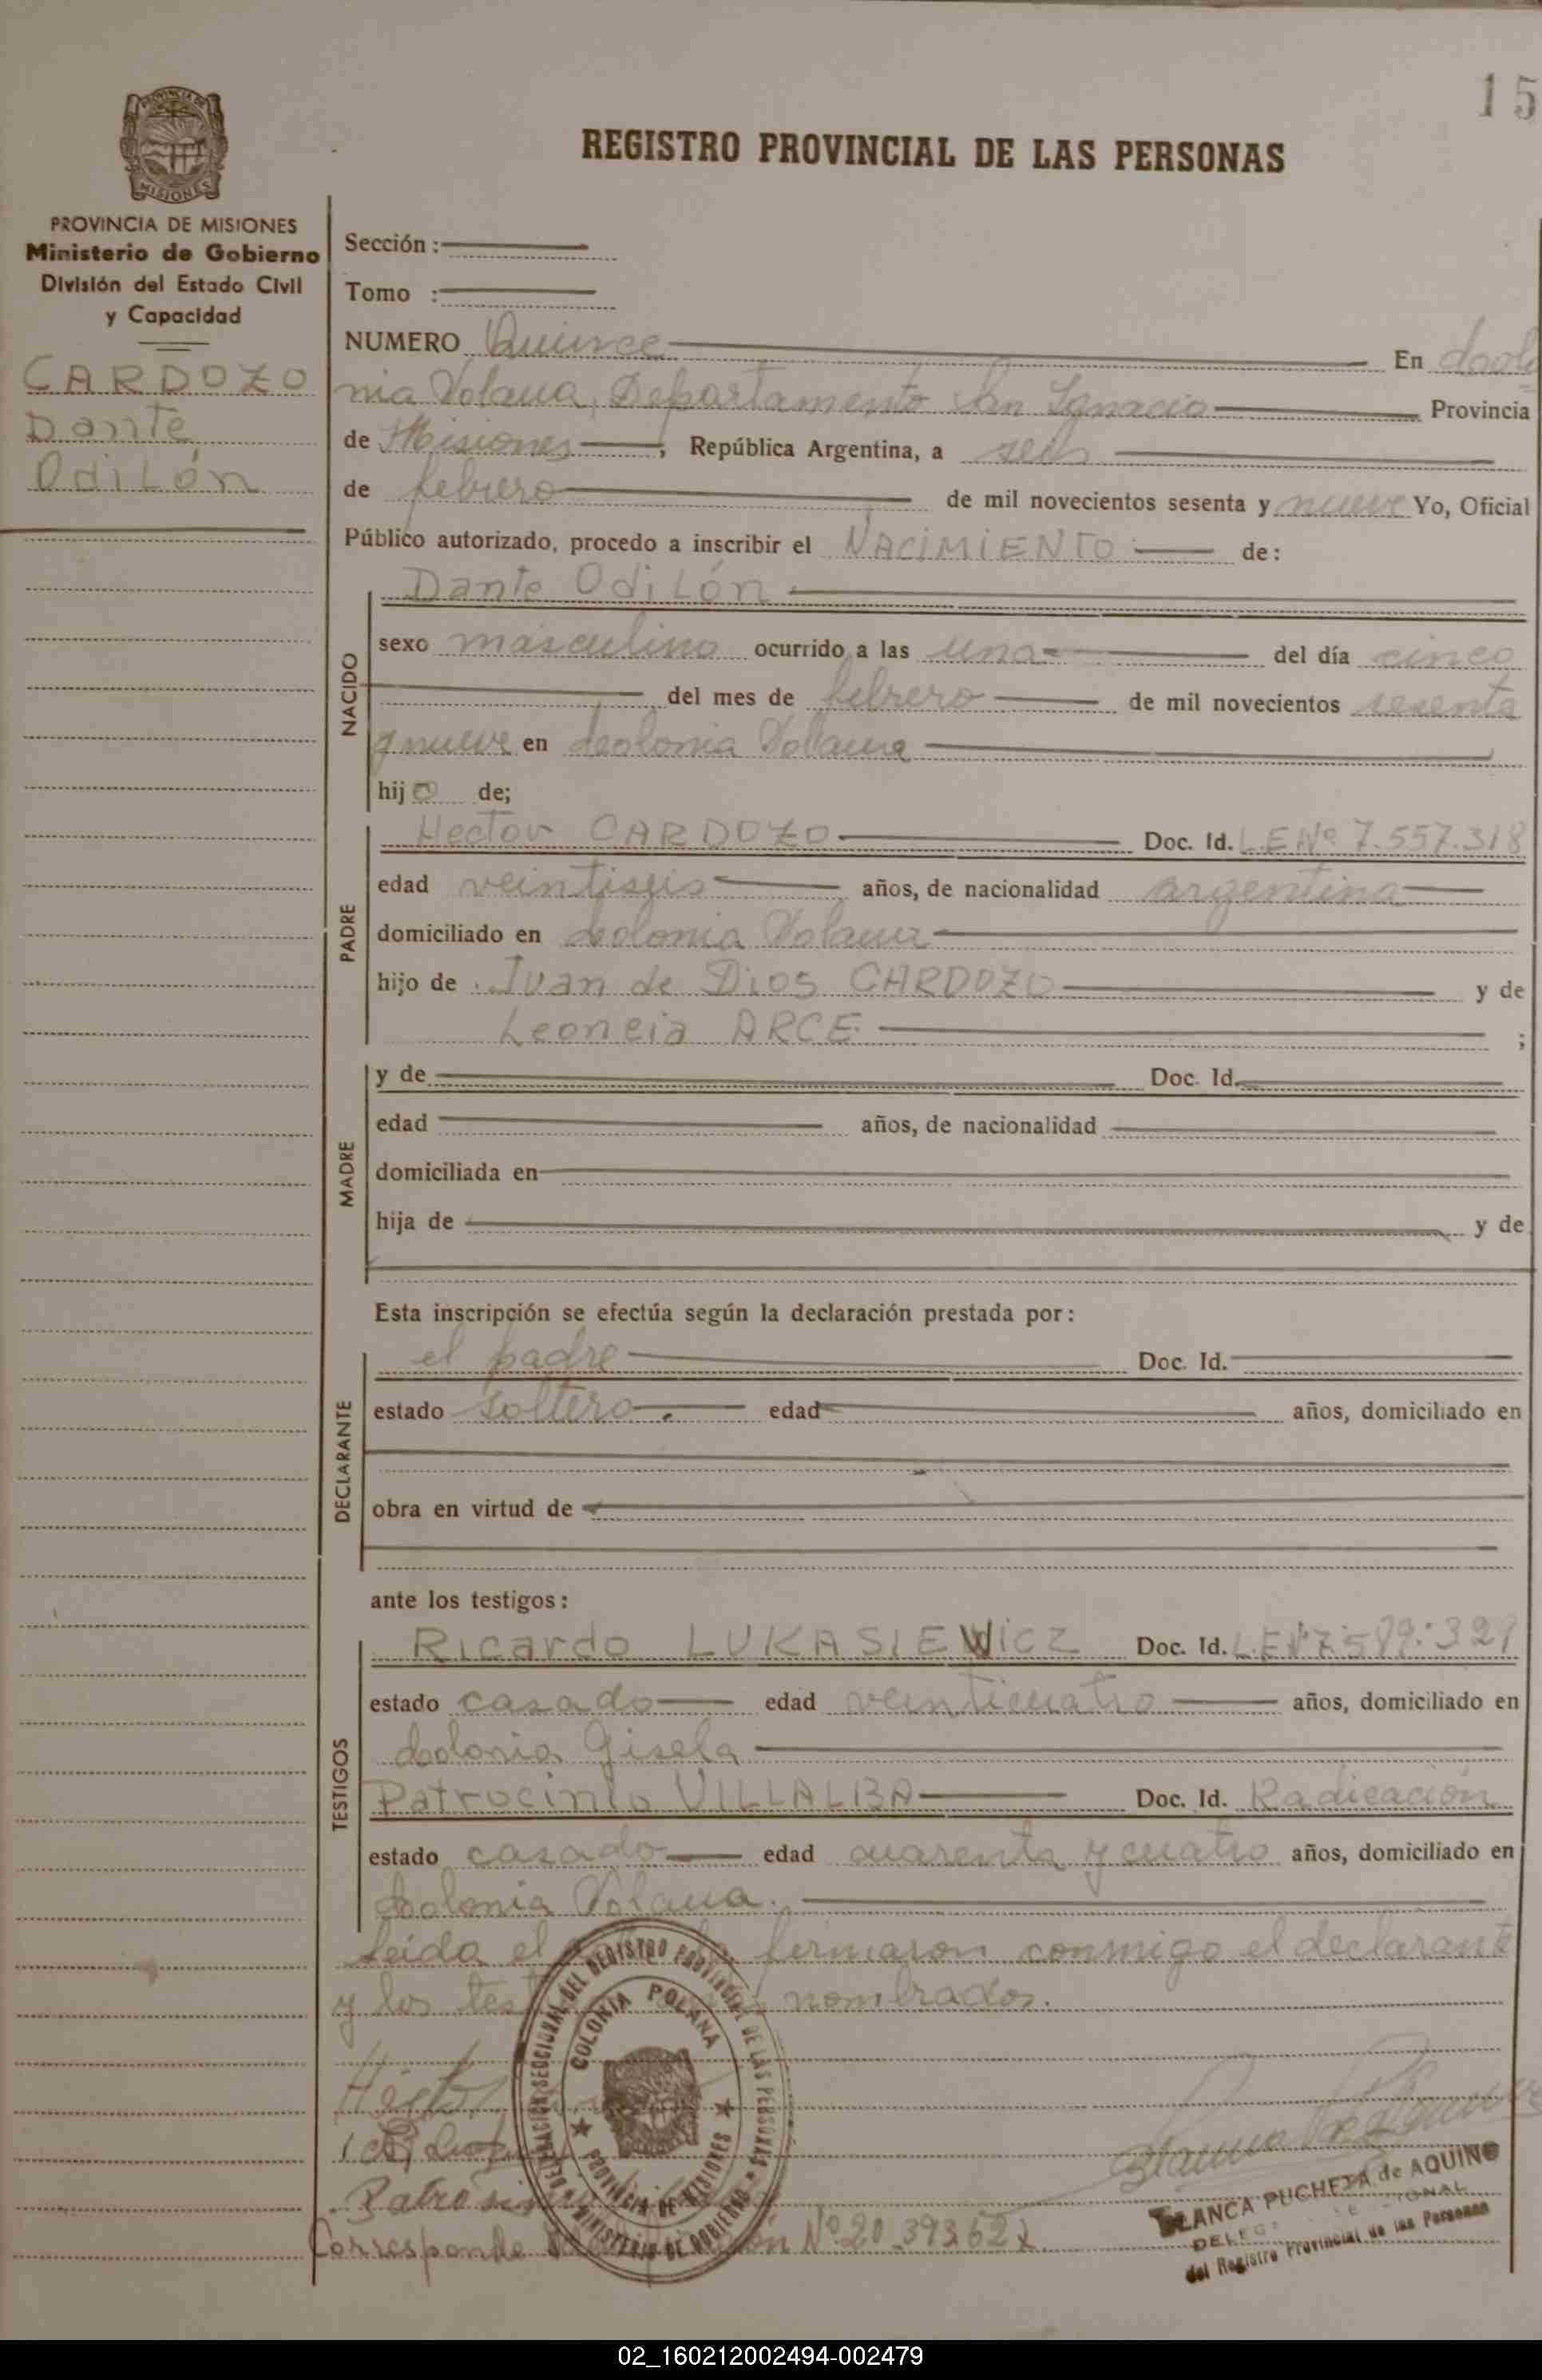 15
REGISTRO PROVINCIAL DE LAS PERSONAS
PROVINCIA DE
MISIONES
PROVINCIA DE MISIONES
Ministerio de Gobierno
División del Estado Civil
y Capacidad
CARDOZO
Dante
Odilón
Sección :
Tomo :
NUMERO Quince En Colo
nia Polana, Departamento San Ignacio Provincia
de Misiones, República Argentina, a seis
de febrero de mil novecientos sesenta y nueve Yo, Oficial
Público autorizado, procedo a inscribir el NACIMIENTO de:
NACIDO
Dante Odilón
sexo masculino ocurrido a las una del día cinco
del mes de febrero de mil novecientos sesenta
y nueve en Colonia Polana
hijo de;
PADRE
Hector CARDOZO Doc. Id. L.E.Nº 7.557.318
edad veintiseis años, de nacionalidad argentina
domiciliado en Colonia Polana
hijo de Juan de Dios CARDOZO y de
Leoncia ARCE ;
MADRE
y de Doc. Id.
edad años, de nacionalidad
domiciliada en
hija de y de
Esta inscripción se efectúa según la declaración prestada por:
DECLARANTE
el padre Doc. Id.
estado soltero. edad años, domiciliado en
obra en virtud de
ante los testigos:
TESTIGOS
Ricardo LUKASIEWICZ Doc. Id.
estado casado edad veinticuatro años, domiciliado en
Colonia Gisela
Patrocinio VILLALBA Doc. Id. Radicación
estado casado edad cuarenta y cuatro años, domiciliado en
Colonia Polana.
Leida el firmaron conmigo el declarante
y los nombrados.
DELEGACIÓN SECCIONAL DEL REGISTRO PROVINCIAL DE LAS PERSONAS
MINISTERIO DE GOBIERNO
COLONIA POLANA
PROVINCIA DE MISIONES
Héctor
BLANCA PUCHETA de AQUINO
del Registro Provincial de las Personas
Corresponde Nº 20.393.62
02_160212002494-002479